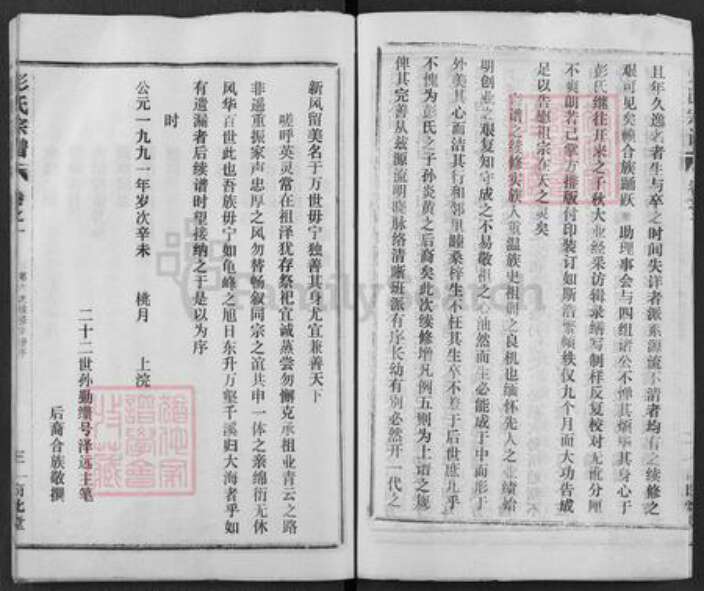 且年久逸名者生与卒之时间失详者派系源流不清者均有之续修之
艰可见矣赖合族踊跃 助理事会与四组诸公不惮其烦毕其身心于
彭氏继往开来之千秋大业经采访辑录缮写制样反复校对无讹分厘
不爽朗若已掌方排版付印装订如斯浩繁倾秩仅九个月而大功告成
足以告慰祖宗在天之灵矣
宗谱之续修实族人重温族史祖训之良机也缅怀先人之业绩始
明创业之艰复知守成之不易敬祖之心油然而生必能成于中而形于
外美其心而洁其行和邻里睦桑梓生不枉其生卒不羞于后世庶几乎
不愧为彭氏之子孙炎黄之后裔矣此次续修增凡例五则为上谱之规
俾其完善从兹源流明晓脉络清晰班派有序长幼有别必然开一代之
新风留美名于万世毋宁独善其身尤宜兼善天下
嗟呼英灵常在祖泽犹存祭祀宜诚蒸尝勿懈克承祖业青云之路
非遥重振家声忠厚之风勿替畅叙同宗之谊共申一体之亲绵衍无休
风华百世此也吾族毋宁如龟峰之旭日东升万壑千溪归大海者乎如
有遗漏者后续谱时望接纳之于是以为序
时
公元一九九一年岁次辛未 桃月 上浣
二十二世孙勤缵号泽远主笔
后裔合族敬撰
彭氏宗谱
卷之一
三
FamilySearch